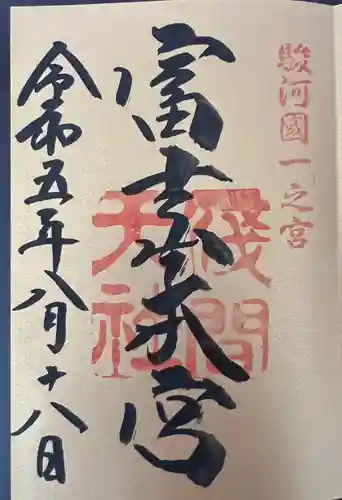 駿河國一之宮
富士本宮
淺間大社
令和五年八月十八日